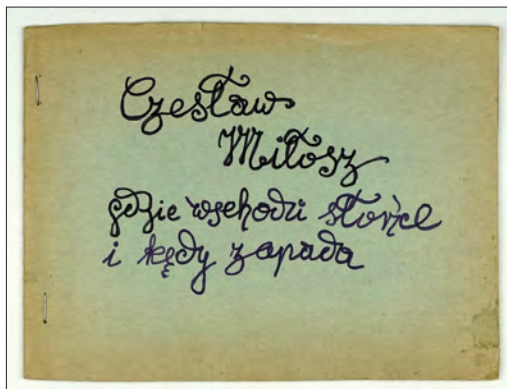 Czesław
Miłosz
gdzie wschodzi słońce
i kędy zapada